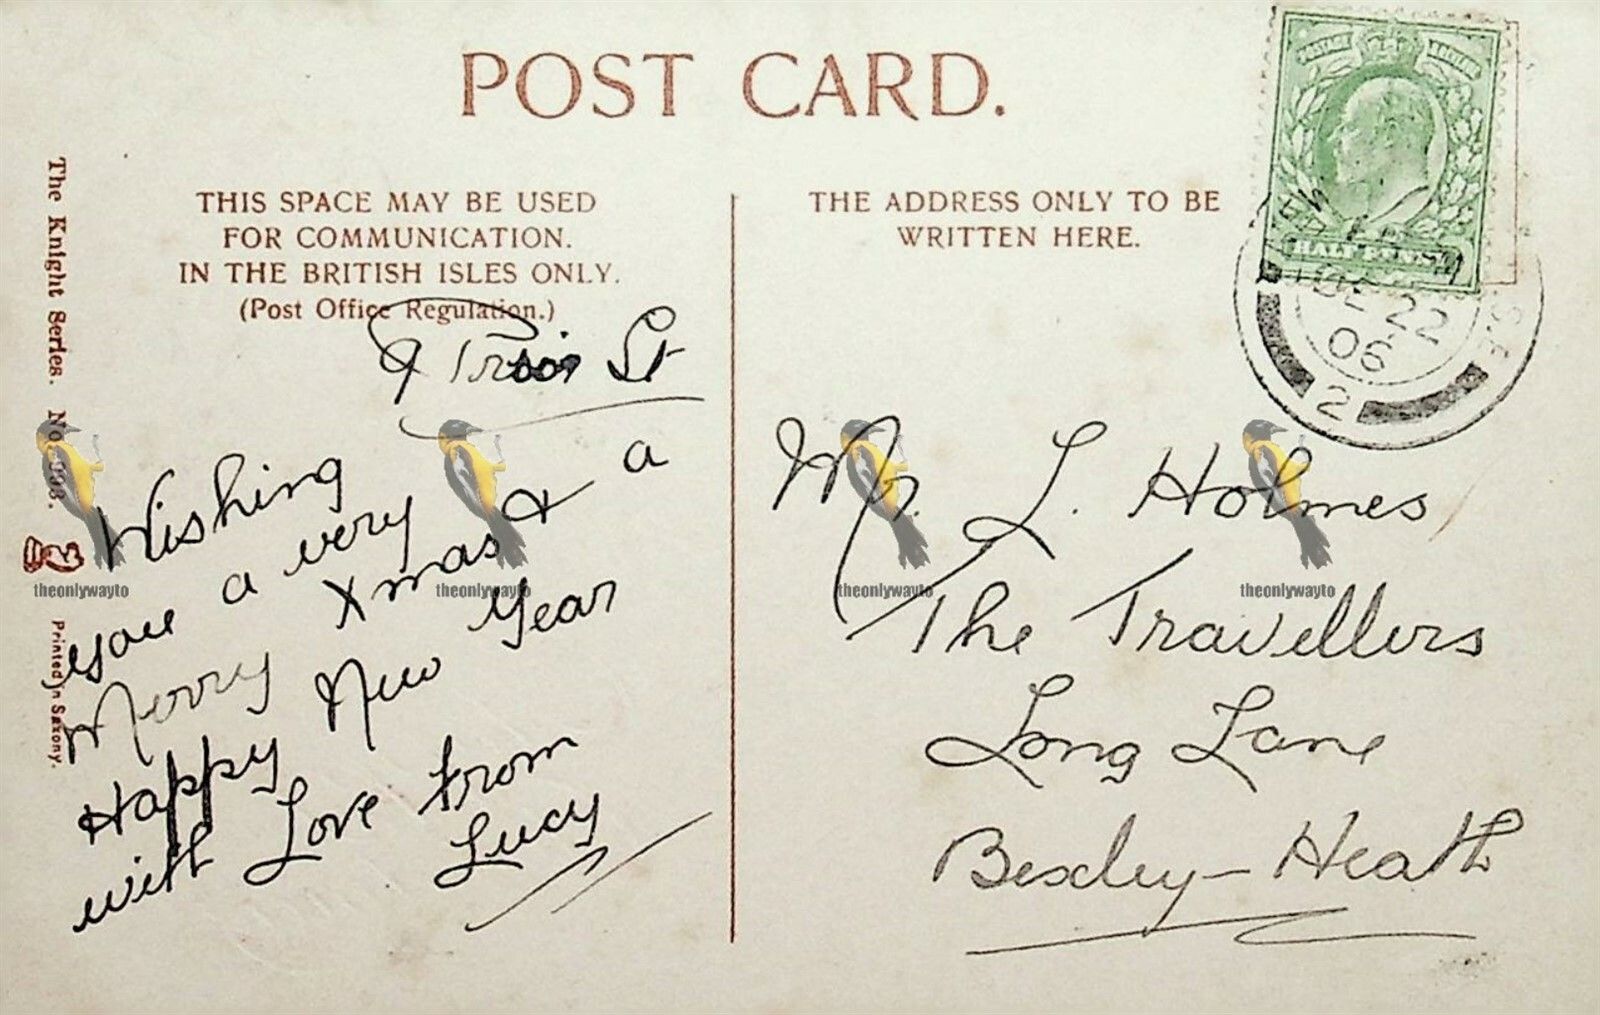 POST CARD.
THIS SPACE MAY BE USED
FOR COMMUNICATION.
IN THE BRITISH ISLES ONLY.
(Post Office Regulation.)
St
Wishing
you a very
Merry Xmas & a
Happy New Year
with Love from
Lucy
THE ADDRESS ONLY TO BE
WRITTEN HERE.
Mr. L. Holmes
The Travellers
Long Lane
Bexley-Heath
POSTAGE REVENUE
HALF PENNY
DE 22
06
2
S.E
The Knight Series. No.
Printed in Saxony.
theonlywayto
theonlywayto
theonlywayto
theonlywayto